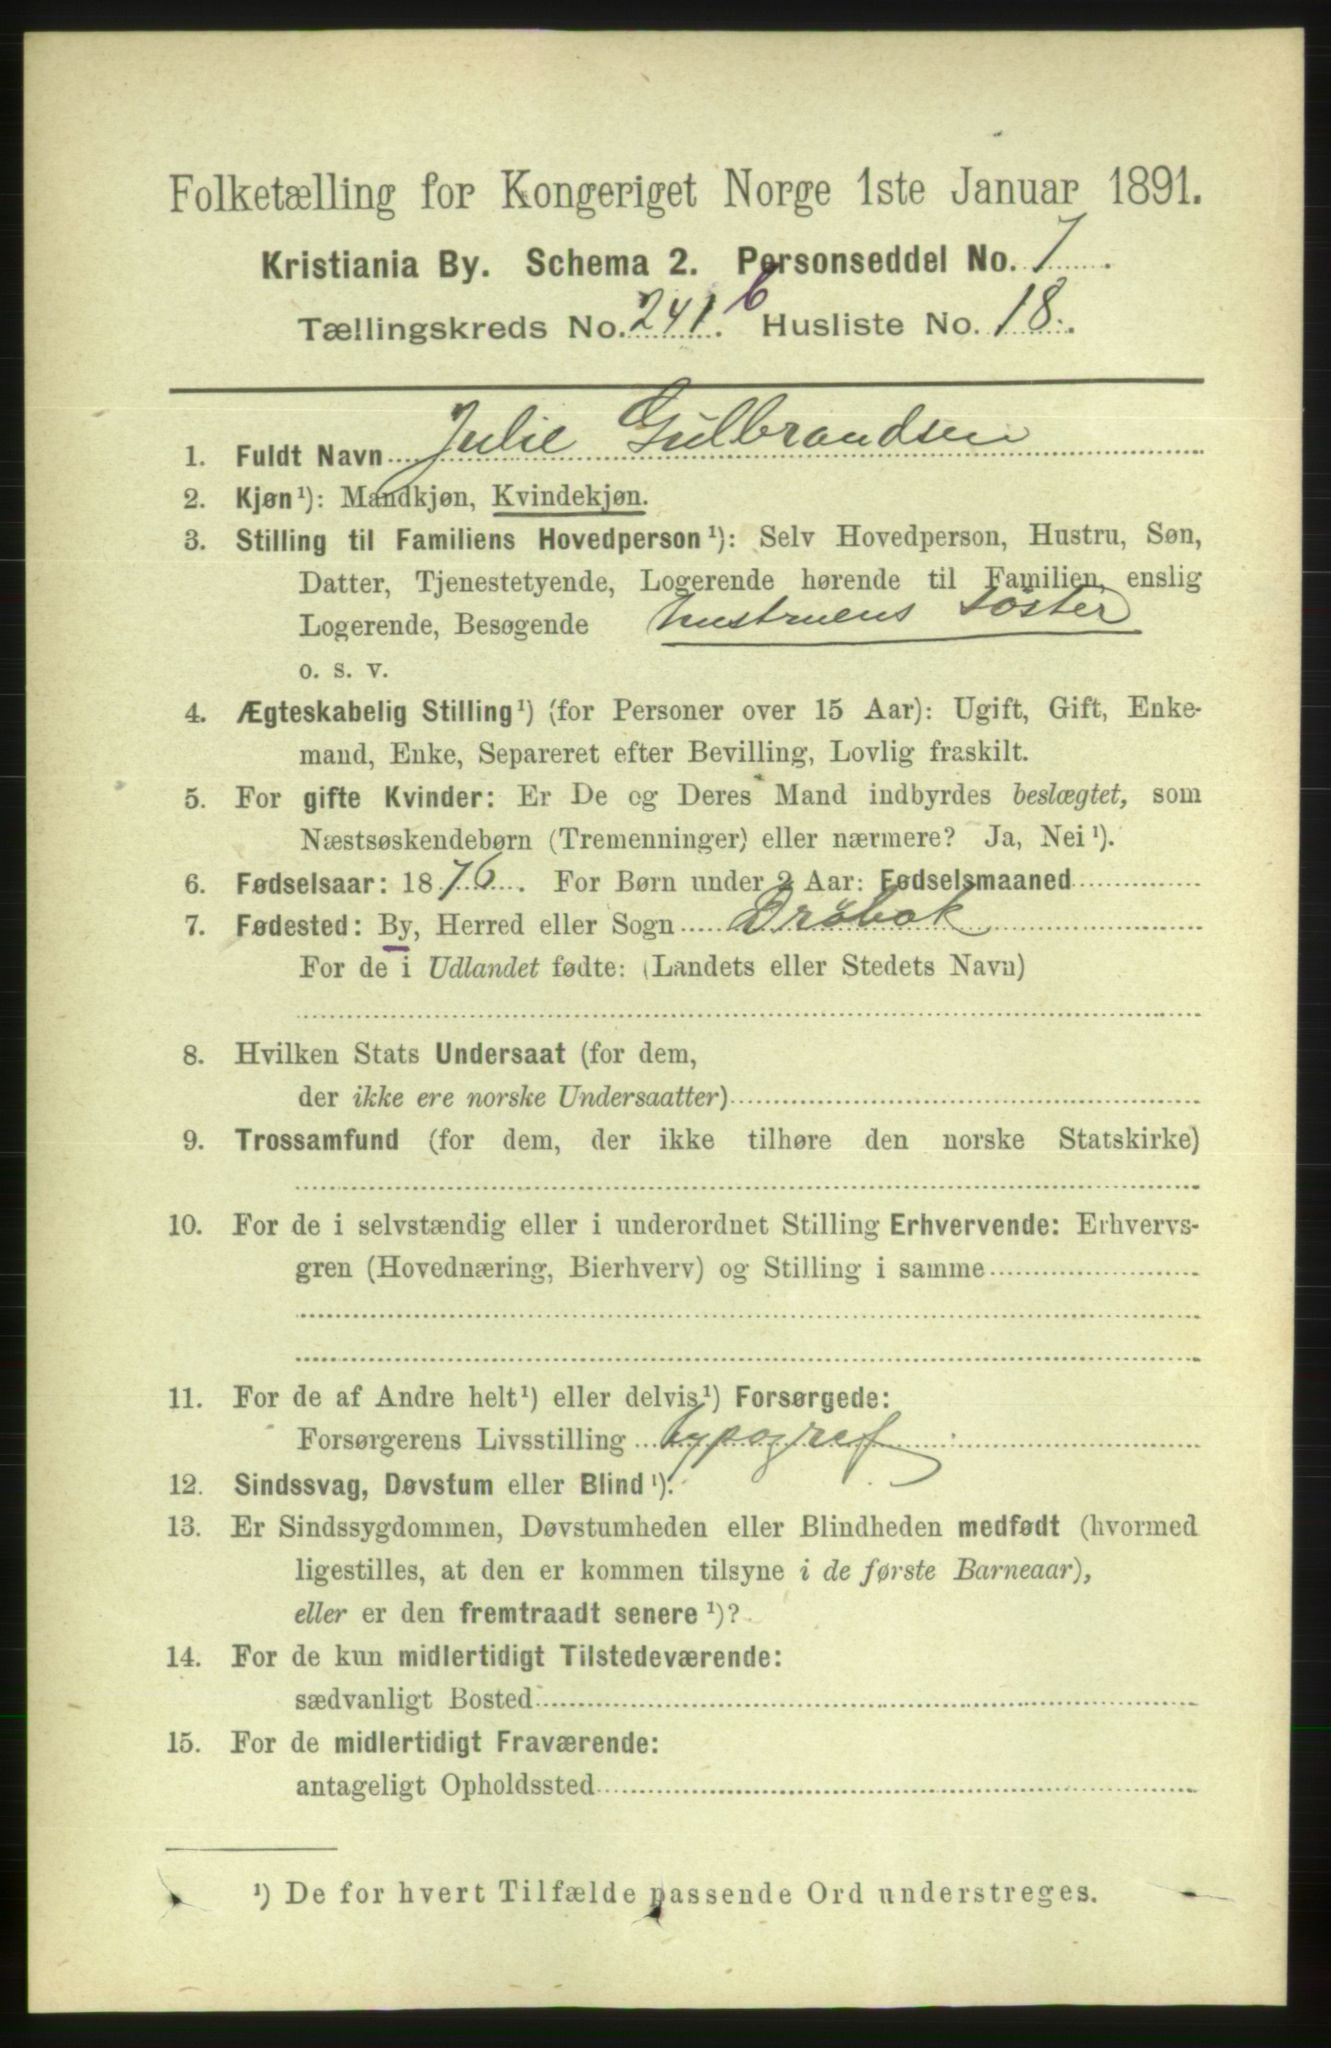 Folketælling for Kongeriget Norge 1ste Januar 1891.
Kristiania By. Schema 2. Personseddel No. 7
Tællingskreds No. 241.b Husliste No. 18.
1. Fuldt Navn Julie Gulbrandsen
2. Kjøn¹): Mandkjøn, Kvindekjøn.
3. Stilling til Familiens Hovedperson¹): Selv Hovedperson, Hustru, Søn,
Datter, Tjenestetyende, Logerende hørende til Familien, enslig
Logerende, Besøgende hustruens Söster
o. s. v.
4. Ægteskabelig Stilling¹) (for Personer over 15 Aar): Ugift, Gift, Enke-
mand, Enke, Separeret efter Bevilling, Lovlig fraskilt.
5. For gifte Kvinder: Er De og Deres Mand indbyrdes beslægtet, som
Næstsøskendebørn (Tremenninger) eller nærmere? Ja, Nei¹).
6. Fødselsaar: 1876. For Børn under 2 Aar: Fødselsmaaned
7. Fødested: By, Herred eller Sogn Dröbak
For de i Udlandet fødte: (Landets eller Stedets Navn)
8. Hvilken Stats Undersaat (for dem,
der ikke ere norske Undersaatter)
9. Trossamfund (for dem, der ikke tilhøre den norske Statskirke)
10. For de i selvstændig eller i underordnet Stilling Erhvervende: Erhvervs-
gren (Hovednæring, Bierhverv) og Stilling i samme
11. For de af Andre helt¹) eller delvis¹) Forsørgede:
Forsørgerens Livsstilling typograf
12. Sindssvag, Døvstum eller Blind¹).
13. Er Sindssygdommen, Døvstumheden eller Blindheden medfødt (hvormed
ligestilles, at den er kommen tilsyne i de første Barneaar),
eller er den fremtraadt senere¹)?
14. For de kun midlertidigt Tilstedeværende:
sædvanligt Bosted
15. For de midlertidigt Fraværende:
antageligt Opholdssted
¹) De for hvert Tilfælde passende Ord understreges.